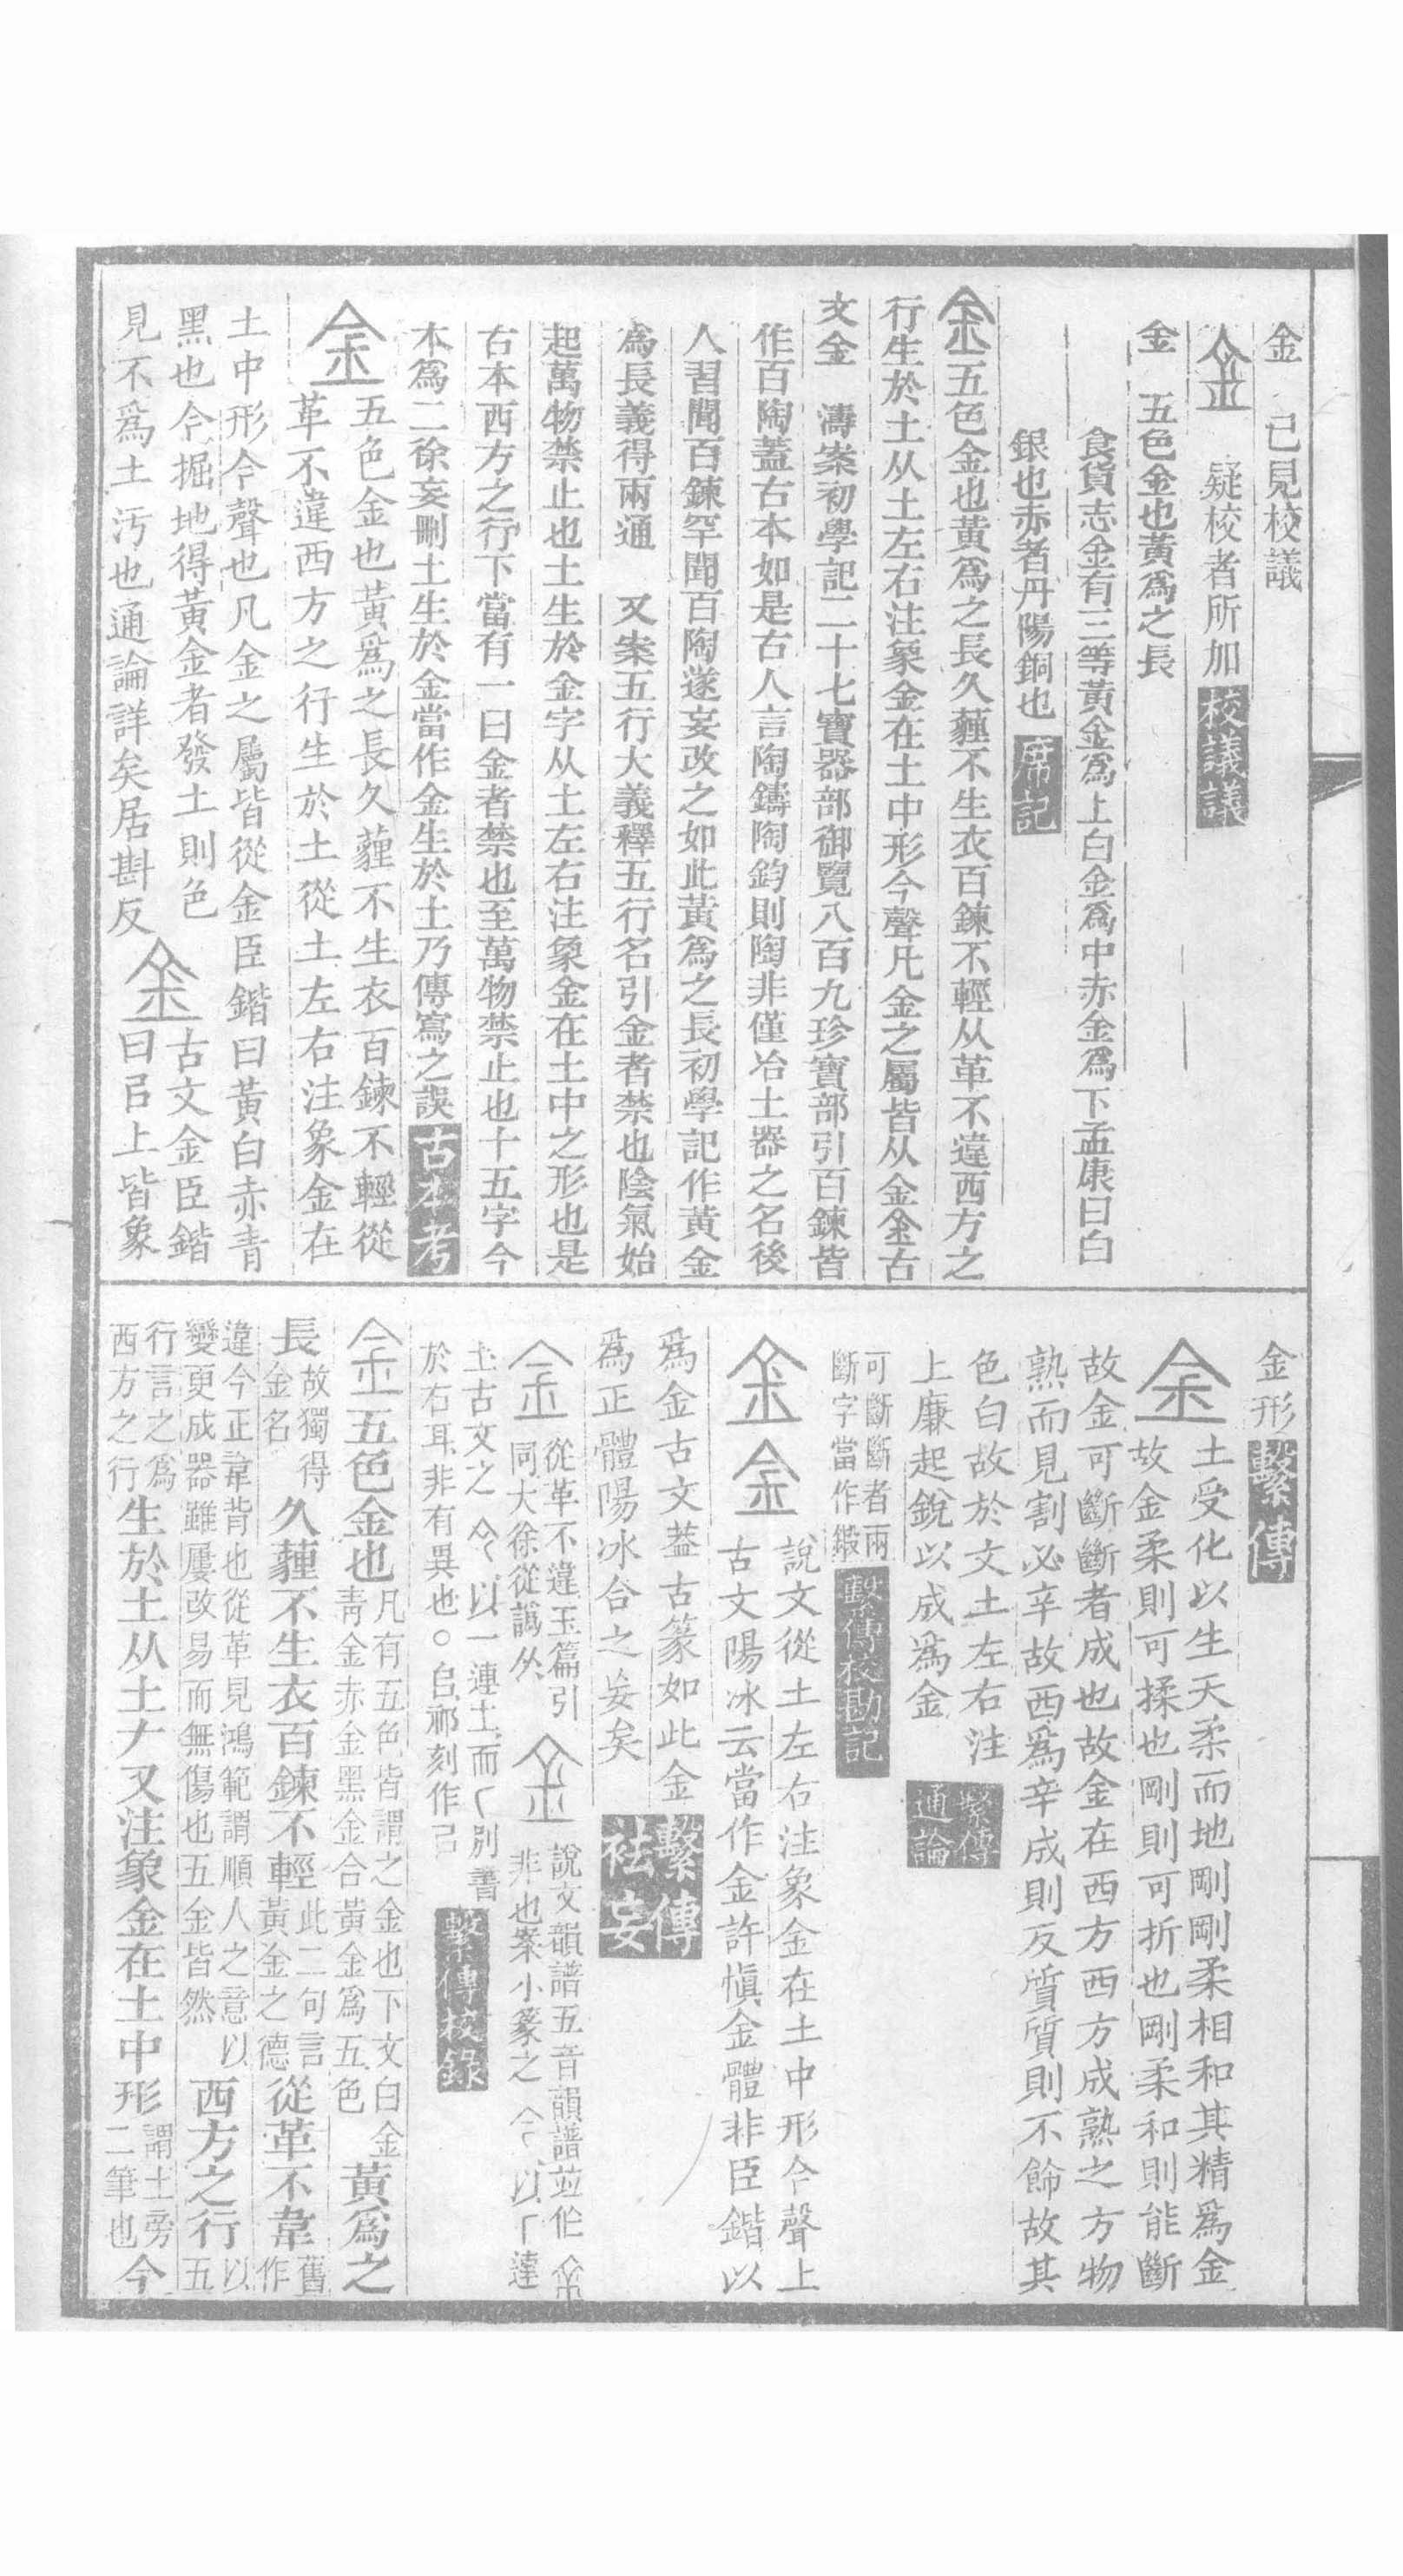 金 已見校議
疑校者所加校議議
金 五色金也黃爲之長
食貨志金有三等黃金爲上白金爲中赤金爲下孟康曰白
銀也赤者丹陽銅也席記
金五色金也黃爲之長久薶不生衣百鍊不輕从革不違西方之
行生於土从土左右注象金在土中形今聲凡金之屬皆从金金古
文金 濤案初學記二十七寶器部御覽八百九珍寶部引百鍊皆
作百陶蓋古本如是古人言陶鑄陶鈞則陶非僅冶土器之名後
人習聞百鍊罕聞百陶遂妄改之如此黃爲之長初學記作黃金
爲長義得兩通 又案五行大義釋五行名引金者禁也陰氣始
起萬物禁止也土生於金字从土左右注象金在土中之形也是
古本西方之行下當有一曰金者禁也至萬物禁止也十五字今
本爲二徐妄刪土生於金當作金生於土乃傳寫之誤古本考
金五色金也黃爲之長久薶不生衣百鍊不輕從
革不違西方之行生於土從土左右注象金在
土中形今聲也凡金之屬皆從金臣鍇曰黃白赤青
黑也今掘地得黃金者發土則色
見不爲土汚也通論詳矣居斟反
古文金臣鍇
曰㠯上皆象
金形繫傳
金土受化以生天柔而地剛剛柔相和其精爲金
故金柔則可揉也剛則可折也剛柔和則能斷
故金可斷斷者成也故金在西方西方成熟之方物
熟而見割必辛故西爲辛成則反質質則不飾故其
色白故於文土左右注
上廉起銳以成爲金
繫傳通論
可斷斷者兩
斷字當作鍛
繫傳校勘記
說文從土左右注象金在土中形今聲上
古文陽冰云當作金許愼金體非臣鍇以
爲金古文葢古篆如此金
爲正體陽冰合之妄矣
繫傳袪妄
從革不違玉篇引
同大徐從譌
說文韻譜五音韻譜竝作
非也案小篆之
土古文之 以一連土而 別書
於右耳非有異也○㠯祁刻作㠯
繫傳校錄
金五色金也凡有五色皆謂之金也下文白金
青金赤金黑金合黃金爲五色黃爲之
長故獨得
金名久薶不生衣百鍊不輕此二句言
黃金之德從革不韋舊
作
違今正韋背也從革見鴻範謂順人之意以
變更成器雖屢改易而無傷也五金皆然西方之行以
五
行言之爲
西方之行生於土从土ナ又注象金在土中形謂土旁
二筆也今